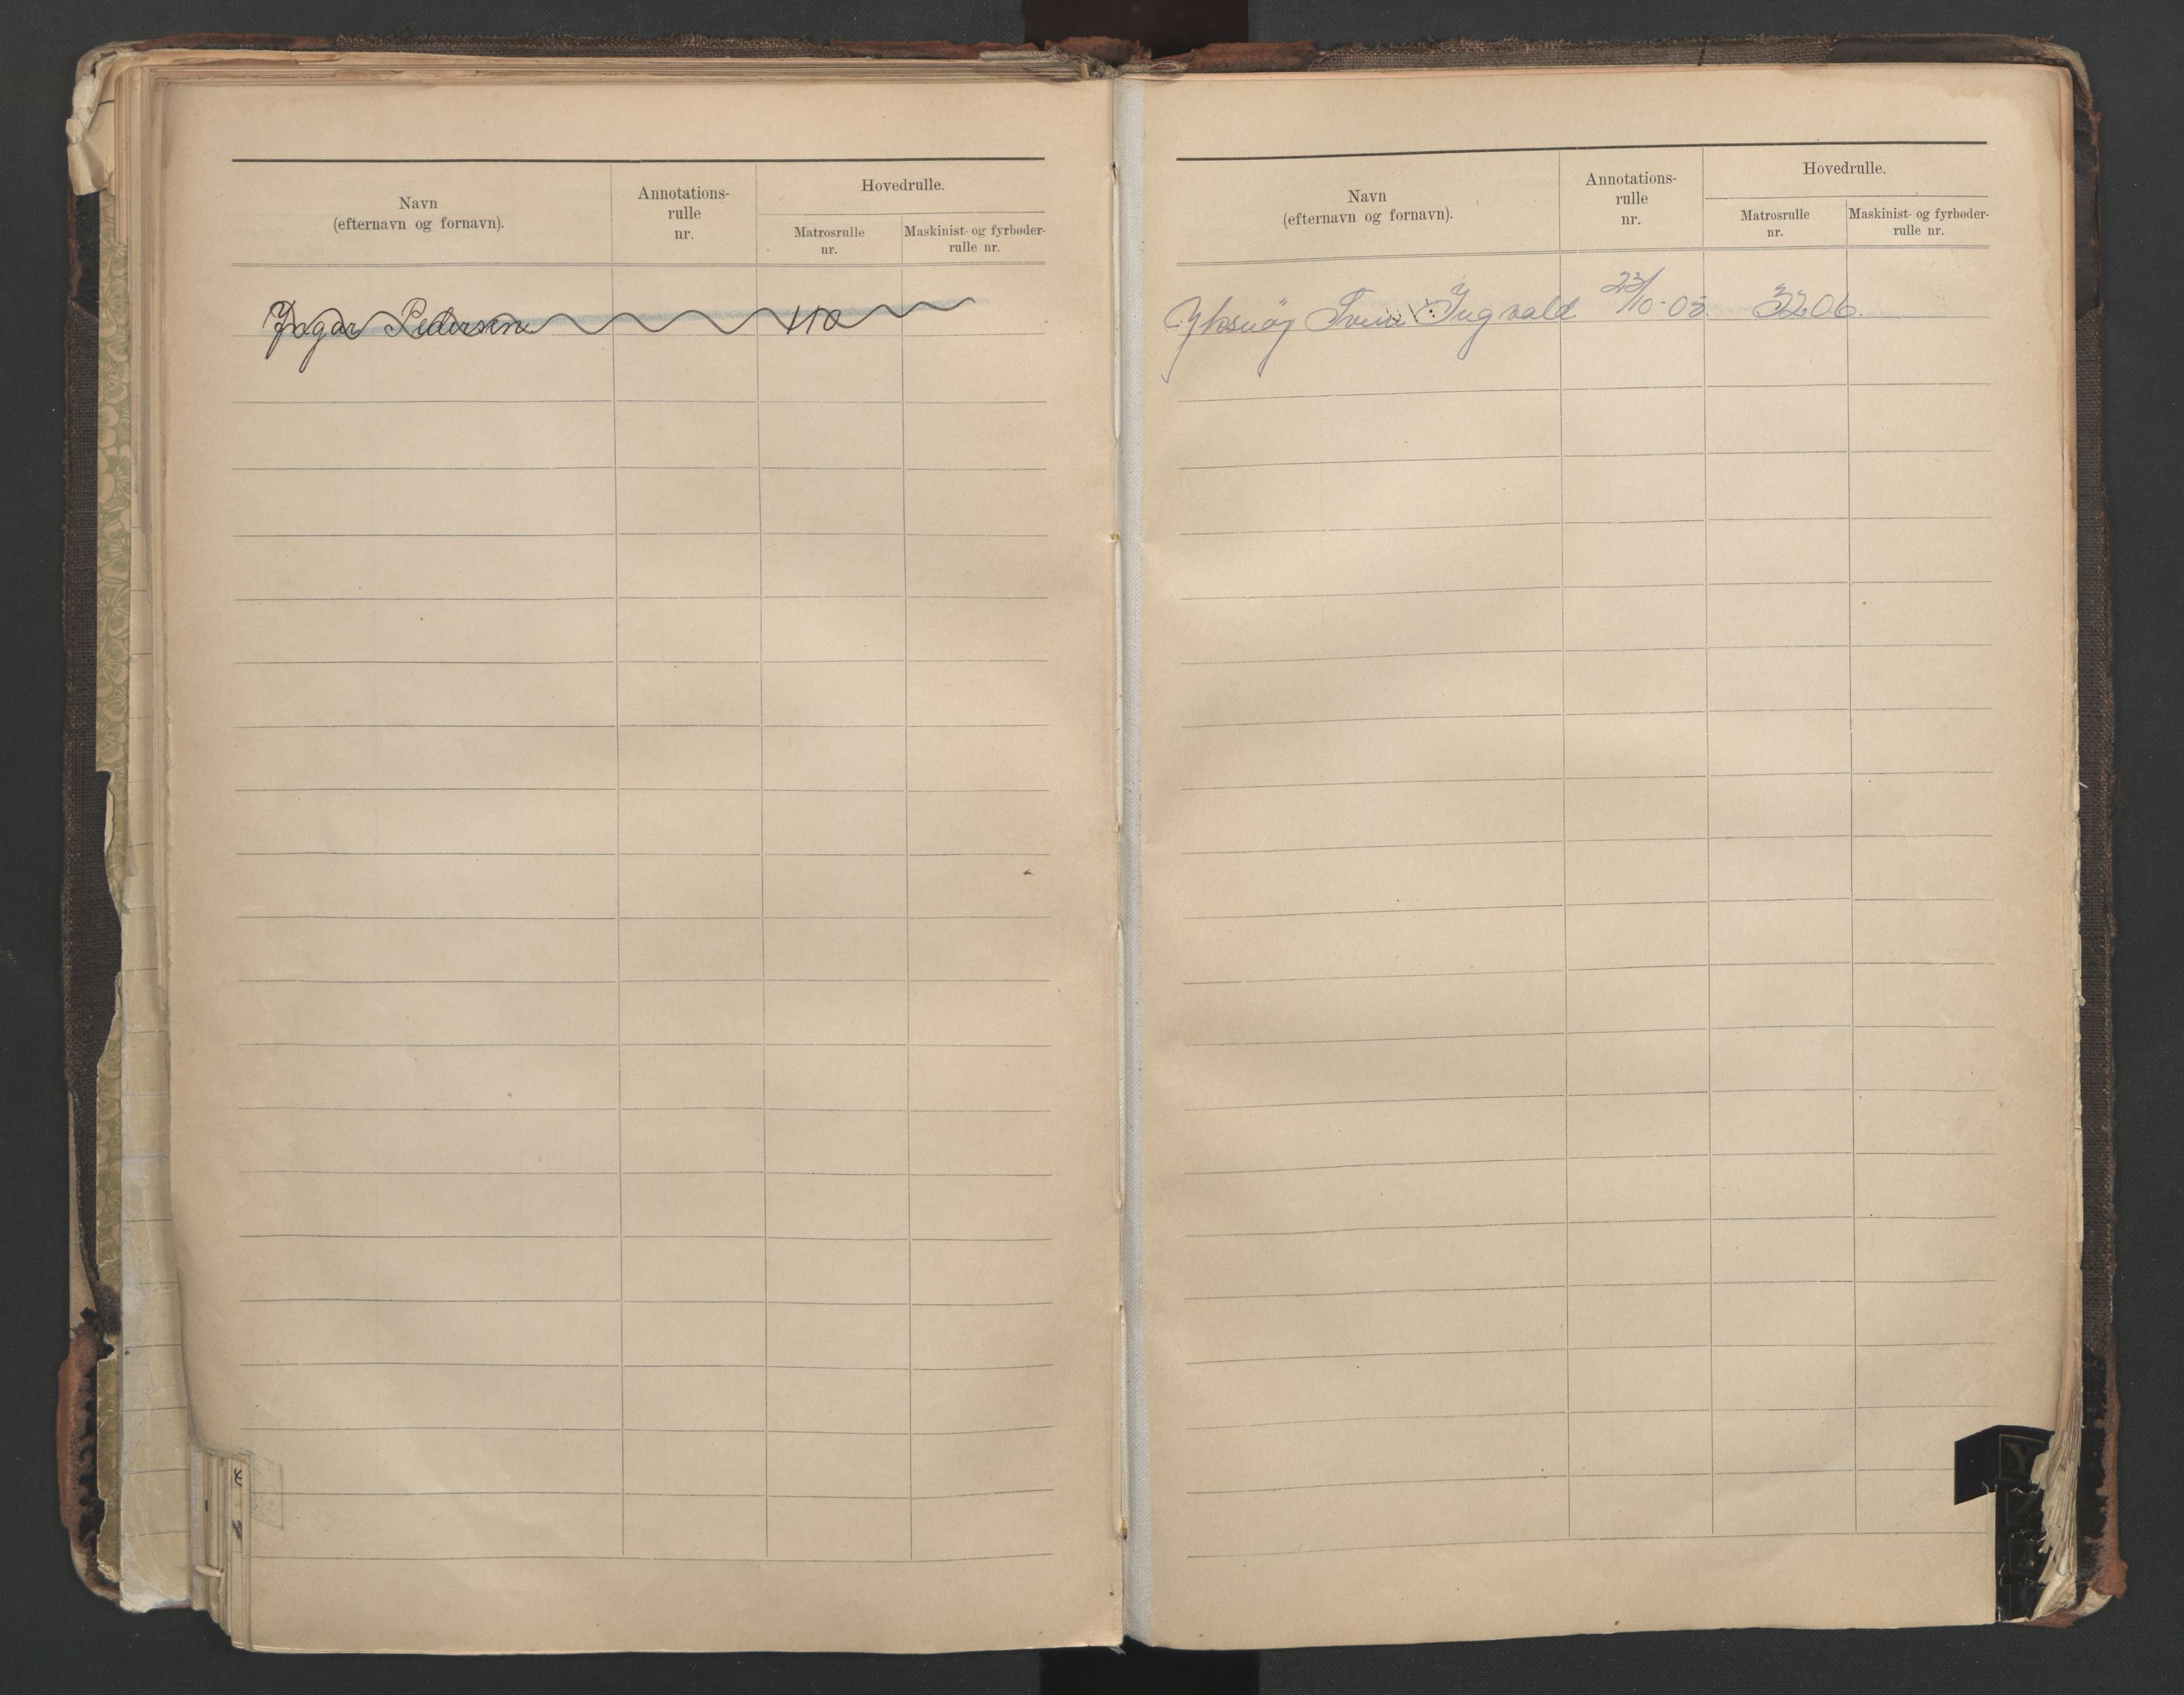 Navn
(efternavn og fornavn).
Annotations-
rulle
nr.
Hovedrulle.
Matrosrulle
nr.
Maskinist- og fyrbøder-
rulle nr.
Ingar Pedersen 110
Navn
(efternavn og fornavn).
Annotations-
rulle
nr.
Hovedrulle.
Matrosrulle
nr.
Maskinist- og fyrbøder-
rulle nr.
Yksnöy Svein Ingvald 23/10-05. 3206.
Y
Z